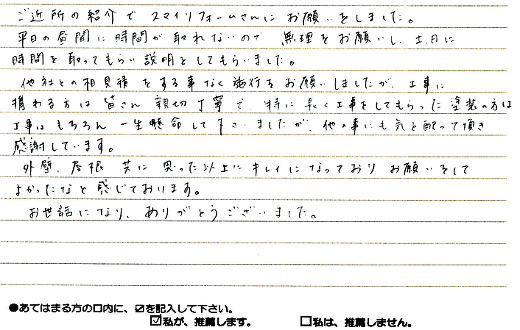 ご近所の紹介で スマイリフォームさんに お願いをしました。
平日の昼間に時間が取れないので 無理をお願いし、土日に
時間を取ってもらい説明としてもらいました。
他社との相見積をする事なく施行をお願いしましたが、工事に
携わる方は 皆さん 親切丁寧で 特に 長く工事をしてもらった塗装の方は
工事はもちろん 一生懸命して下さいましたが、他の事にも気を配って頂き
感謝しています。
外壁、屋根 共に 思った以上にキレイになっており お願いをして
よかったなと感じております。
お世話になり、ありがとうございました。
●あてはまる方の口内に、☑を記入して下さい。
☑私が、推薦します。 □私は、推薦しません。